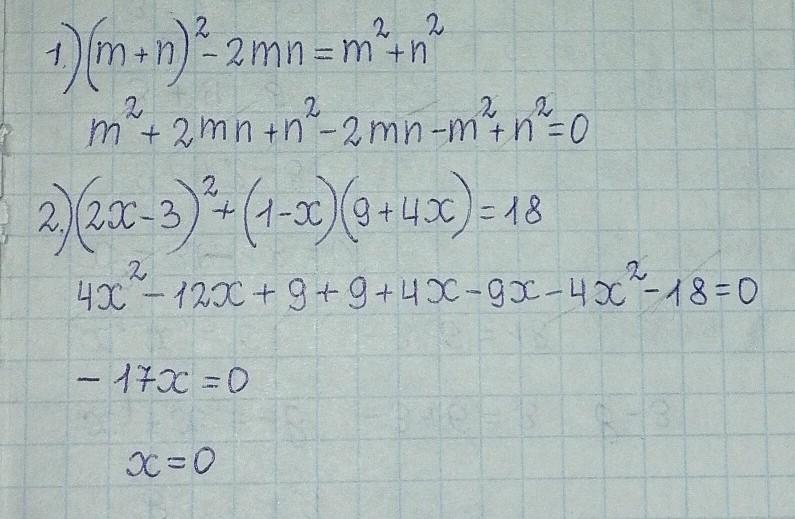 1.) (m+n)² - 2mn = m² + n²
m² + 2mn + n² - 2mn - m² + n² = 0
2.) (2x-3)² + (1-x)(9+4x) = 18
4x² - 12x + 9 + 9 + 4x - 9x - 4x² - 18 = 0
- 17x = 0
x = 0